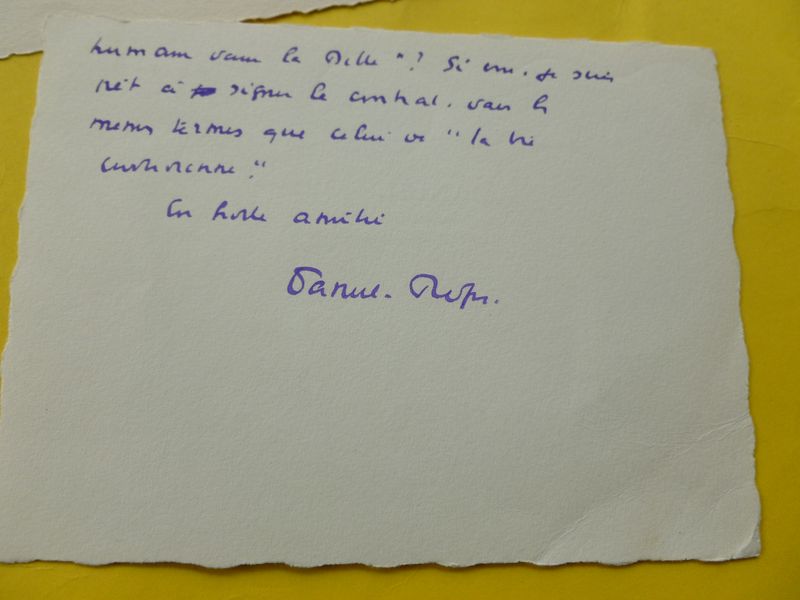 humain dans la Bible" ? Si oui, je suis
prêt à signer le contrat, dans les
mêmes termes que celui de "la vie
quotidienne".
En fidèle amitié
Daniel-Rops.